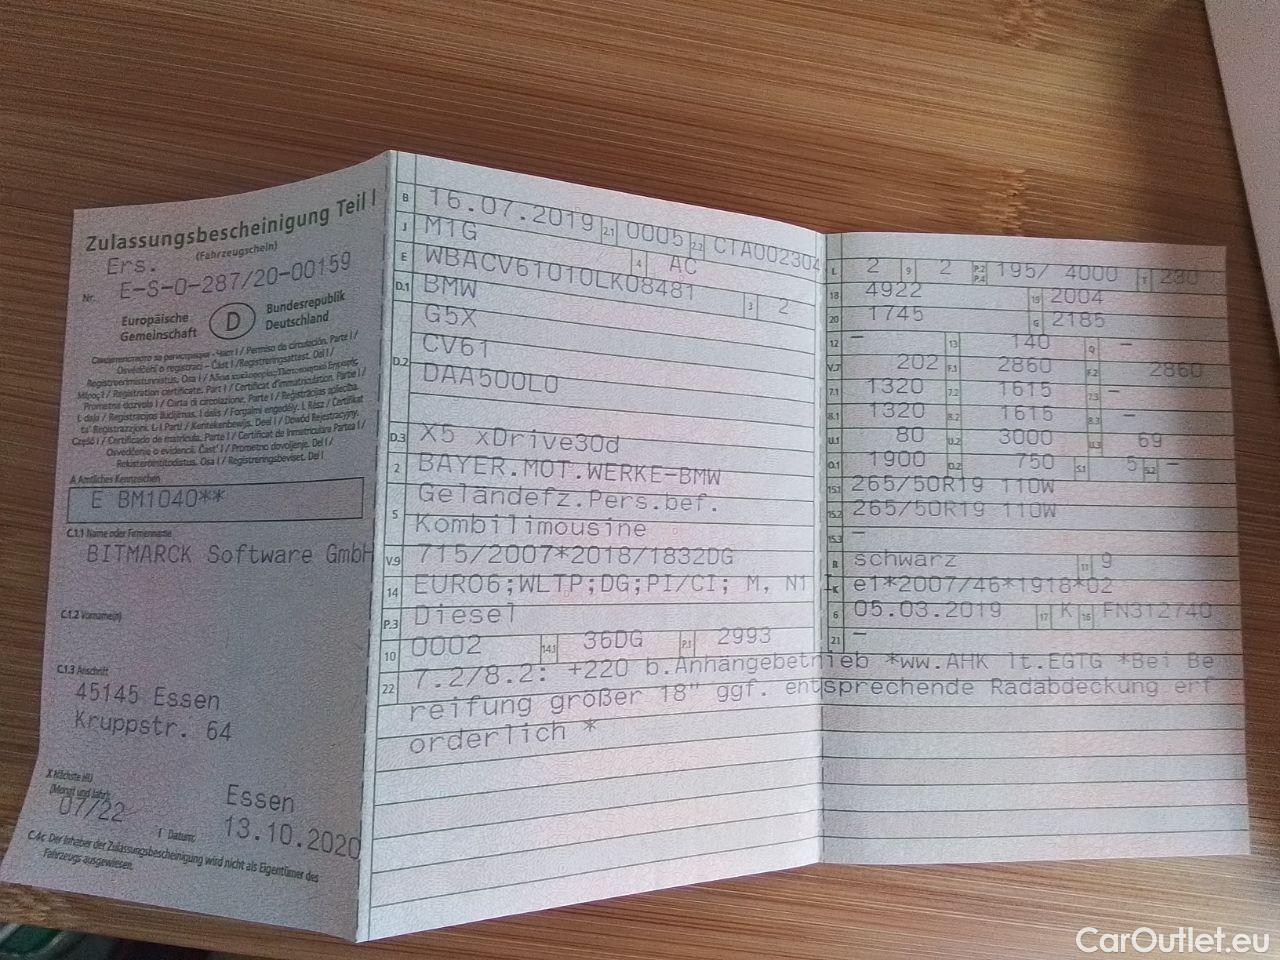 Zulassungsbescheinigung Teil I
(Fahrzeugschein)
Ers.
Nr. E-S-0-287/20-00159
Europäische Gemeinschaft D Bundesrepublik Deutschland
Свидетелство за регистрация - Част I / Permiso de circulación. Parte I /
Osvědčení o registraci - Část I / Registreringsattest. Del I /
Registreerimistunnistus. Osa I /
Μέρος I / Registration certificate. Part I / Certificat d'immatriculation. Partie I /
Prometna dozvola I / Carta di circolazione. Parte I / Reģistrācijas apliecība.
I. daļa / Registracijos liudijimas. I dalis / Forgalmi engedély. I. Rész / Ċertifikat
ta' Reġistrazzjoni. L-I Parti / Kentekenbewijs. Deel I / Dowód Rejestracyjny.
Część I / Certificado de matrícula. Parte I / Certificat de înmatriculare Partea I /
Osvedčenie o evidencii. Časť I / Prometno dovoljenje. Del I /
Rekisteröintitodistus. Osa I / Registreringsbeviset. Del I
A Amtliches Kennzeichen
E BM1040**
C.1.1 Name oder Firmenname
BITMARCK Software GmbH
C.1.2 Vorname(n)
C.1.3 Anschrift
45145 Essen
Kruppstr. 64
X Nächste HU
(Monat und Jahr)
07/22
Essen
I Datum: 13.10.2020
C.4c Der Inhaber der Zulassungsbescheinigung wird nicht als Eigentümer des
Fahrzeugs ausgewiesen.
B 16.07.2019 2.1 0005 2.2 CTA002304
J M1G 4 AC
E WBACV61010LK08481 3 2
D.1 BMW
D.2 G5X
CV61
DAA500L0
D.3 X5 xDrive30d
2 BAYER.MOT.WERKE-BMW
5 Geländefz.Pers.bef.
Kombilimousine
V.9 715/2007*2018/1832DG
14 EURO6;WLTP;DG;PI/CI; M, N1 I
P.3 Diesel
10 0002 14.1 36DG P.1 2993
L 2 9 2 P.2 P.4 195/ 4000 T 230
18 4922 19 2004
20 1745 G 2185
12 – 13 140 Q –
V.7 202 F.1 2860 F.2 2860
7.1 1320 7.2 1615 7.3 –
8.1 1320 8.2 1615 8.3 –
U.1 80 U.2 3000 U.3 69
O.1 1900 O.2 750 S.1 5 S.2 –
15.1 265/50R19 110W
15.2 265/50R19 110W
15.3 –
R schwarz 11 9
K e1*2007/46*1918*02
6 05.03.2019 17 K 16 FN312740
21 –
22 7.2/8.2: +220 b.Anhängebetrieb *ww.AHK lt.EGTG *Bei Be
reifung größer 18" ggf. entsprechende Radabdeckung erf
orderlich *
CarOutlet.eu